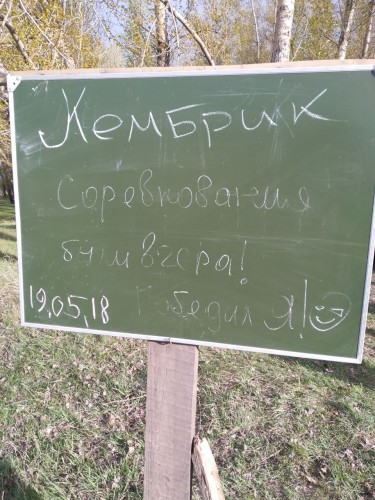 Кембрик
Соревнования
были вчера!
19,05,18 Победил Я!